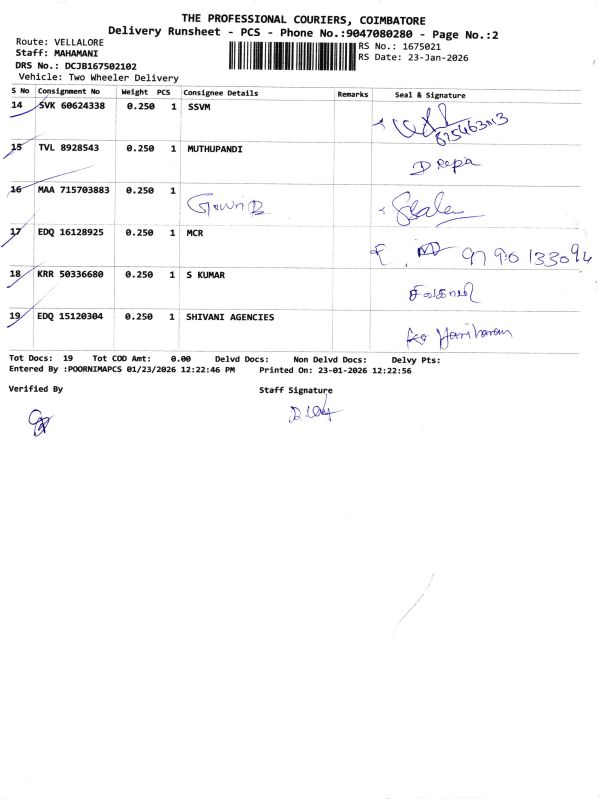 THE PROFESSIONAL COURIERS, COIMBATORE
Delivery Runsheet - PCS - Phone No.:9047080280 - Page No.:2
Route: VELLALORE
RS No.: 1675021
Staff: MAHAMANI
RS Date: 23-Jan-2026
DRS No.: DCJB167502102
Vehicle: Two Wheeler Delivery
S No Consignment No Weight PCS Consignee Details Remarks Seal & Signature
14 SVK 60624338 0.250 1 SSVM
15 TVL 8928543 0.250 1 MUTHUPANDI
Deepa
16 MAA 715703883 0.250 1
17 EDQ 16128925 0.250 1 MCR
9790133094
18 KRR 50336680 0.250 1 S KUMAR
19 EDQ 15120304 0.250 1 SHIVANI AGENCIES
Hariharan
Tot Docs: 19 Tot COD Amt: 0.00 Delvd Docs: Non Delvd Docs: Delvy Pts:
Entered By :POORNIMAPCS 01/23/2026 12:22:46 PM Printed On: 23-01-2026 12:22:56
Verified By Staff Signature